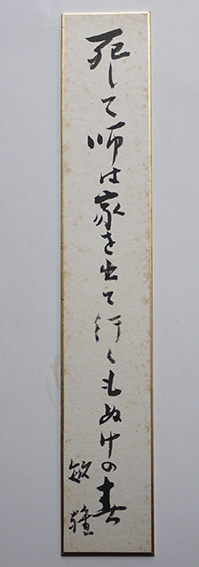 死して師は家を出て行くもぬけの春
敏雄